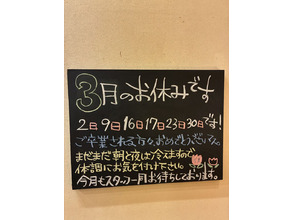 3月のお休みです
2日9日16日17日23日30日です!
ご卒業される方々、おめでとうございます。
まだまだ朝と夜は冷えますので
体調にお気を付け下さい。
今月もスタッフ一同お待ちしております。